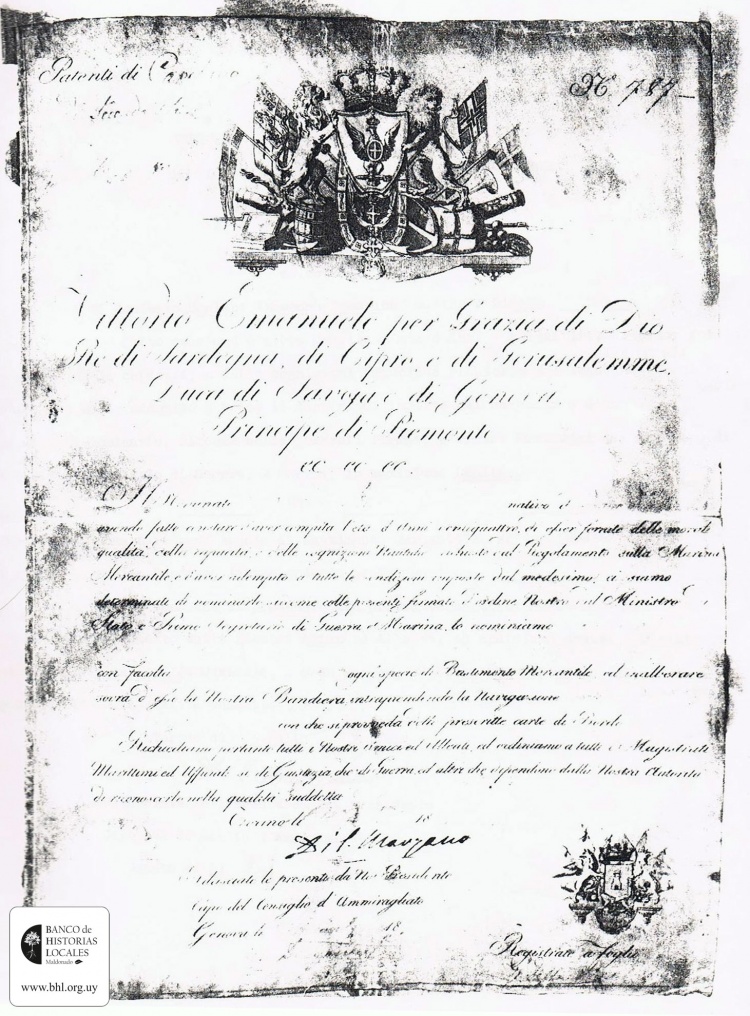 Patenti di
N° 787
Vittorio Emanuele per Grazia di Dio
Re di Sardegna, di Cipro, e di Gerusalemme,
Duca di Savoja, e di Genova,
Principe di Piemonte
ec ec ec
nativo d
avendo fatto constare d'aver compita l'età d'Anni ventiquattro, di esser fornito delle morali
qualità, della capacità e delle cognizioni Nautiche dal Regolamento sulla Marina
Mercantile, e d'aver adempito a tutte le condizioni imposte dal medesimo, ci siamo
determinati di nominarlo siccome colle presenti firmate d'ordine Nostro dal Ministro
Stato e Primo Segretario di Guerra e Marina, lo nominiamo
con facoltà ogni specie di Bastimento Mercantile ed inalberare
sovra d'essi la Nostra Bandiera, intraprendendo la Navigazione
ora che si provveda delle prescritte carte di Bordo
Richiediamo pertanto tutti i Nostri Amici ed Alleati, ed ordiniamo a tutti i Magistrati
Marittimi ed Uffiziali sì di Giustizia, che di Guerra, ed altri che dipendono dalla Nostra Autorità
di riconoscerlo nella qualità suddetta
Torino li 18
Di S. Marzano
Rilasciate le presenti da Noi Presidente
Capo del Consiglio d'Ammiragliato
Genova li 18
Registrato a foglio
BANCO de
HISTORIAS
LOCALES
Maldonado
www.bhl.org.uy